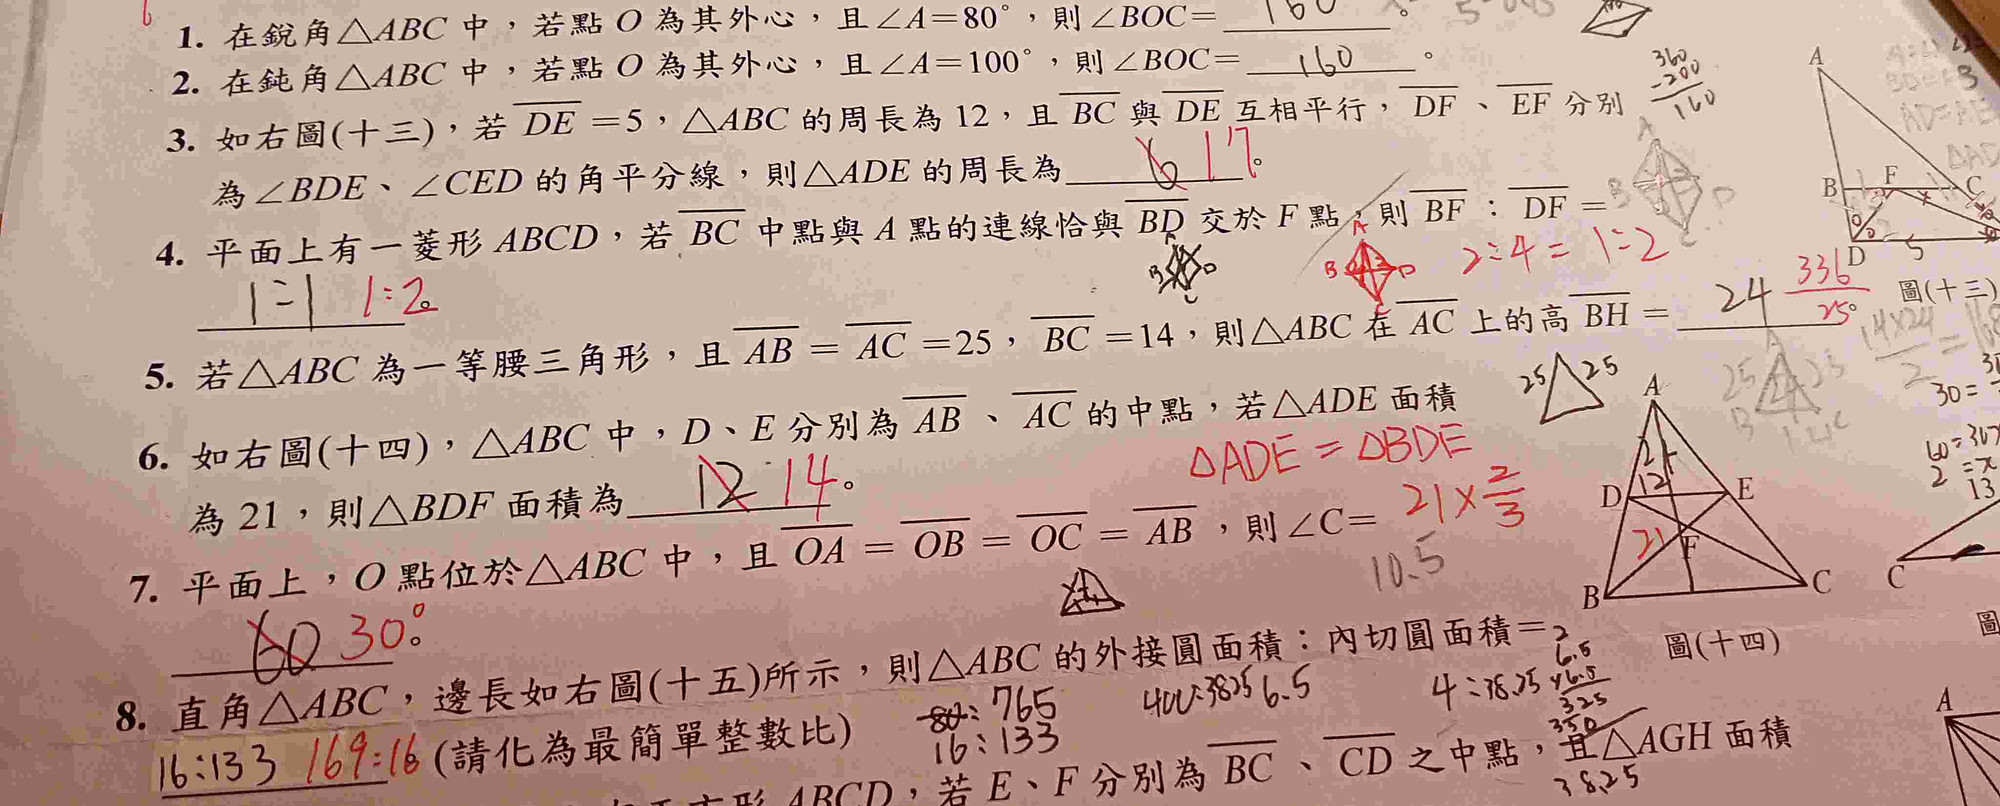 1. 在銳角△ABC 中，若點 O 為其外心，且∠A=80°，則∠BOC= 160 。
2. 在鈍角△ABC 中，若點 O 為其外心，且∠A=100°，則∠BOC= 160 。
360
-200
160
3. 如右圖(十三)，若 DE =5，△ABC 的周長為 12，且 BC 與 DE 互相平行，DF、EF 分別
為∠BDE、∠CED 的角平分線，則△ADE 的周長為 6 17。
A
B F C
D 5
圖(十三)
4. 平面上有一菱形 ABCD，若 BC 中點與 A 點的連線恰與 BD 交於 F 點，則 BF：DF =
1:1 1:2。
A B D C
A B D C
2:4 = 1:2
5. 若△ABC 為一等腰三角形，且 AB = AC =25，BC =14，則△ABC 在 AC 上的高 BH = 24 336/25。
25 25
14×24
2
30=
6. 如右圖(十四)，△ABC 中，D、E 分別為 AB、AC 的中點，若△ADE 面積
為 21，則△BDF 面積為 12 14。
△ADE = △BDE
21×2/3
10.5
A
21
12
D E
21 F
B C
圖(十四)
7. 平面上，O 點位於△ABC 中，且 OA = OB = OC = AB，則∠C=
60 30°。
8. 直角△ABC，邊長如右圖(十五)所示，則△ABC 的外接圓面積：內切圓面積=
16:133 169:16 (請化為最簡單整數比)
80: 765
16:133
400:3825 6.5
4:38.25
6.5
×6.5
325
350
38.25
ABCD，若 E、F 分別為 BC、CD 之中點，且△AGH 面積
A
C
圖